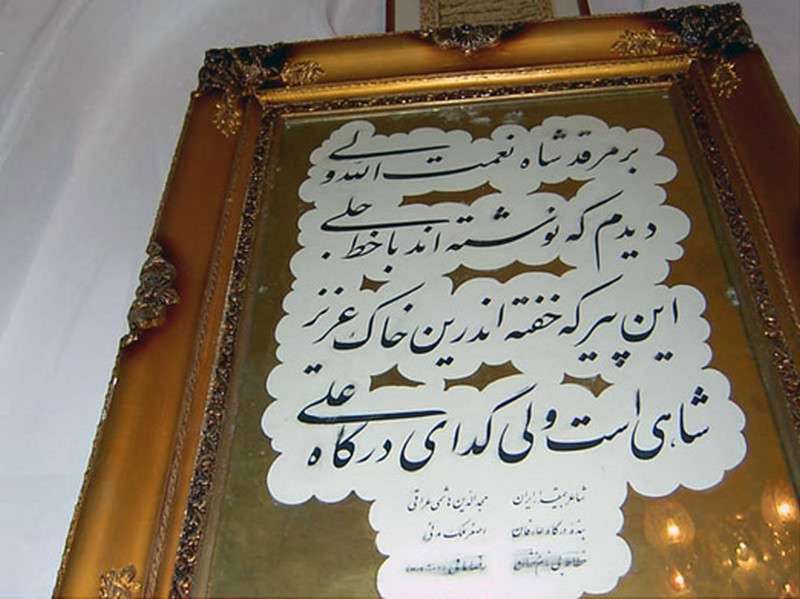 بر مرقد شاه نعمت الله ولی
دیدم که نوشته اند با خط جلی
این پیر که خفته اندرین خاک عزیز
شاهی است ولی گدای درگاه علی
شاعر ایران مجدالدین هاشمی عراقی
بنده درگاه عارفان اصغر ملک مدنی